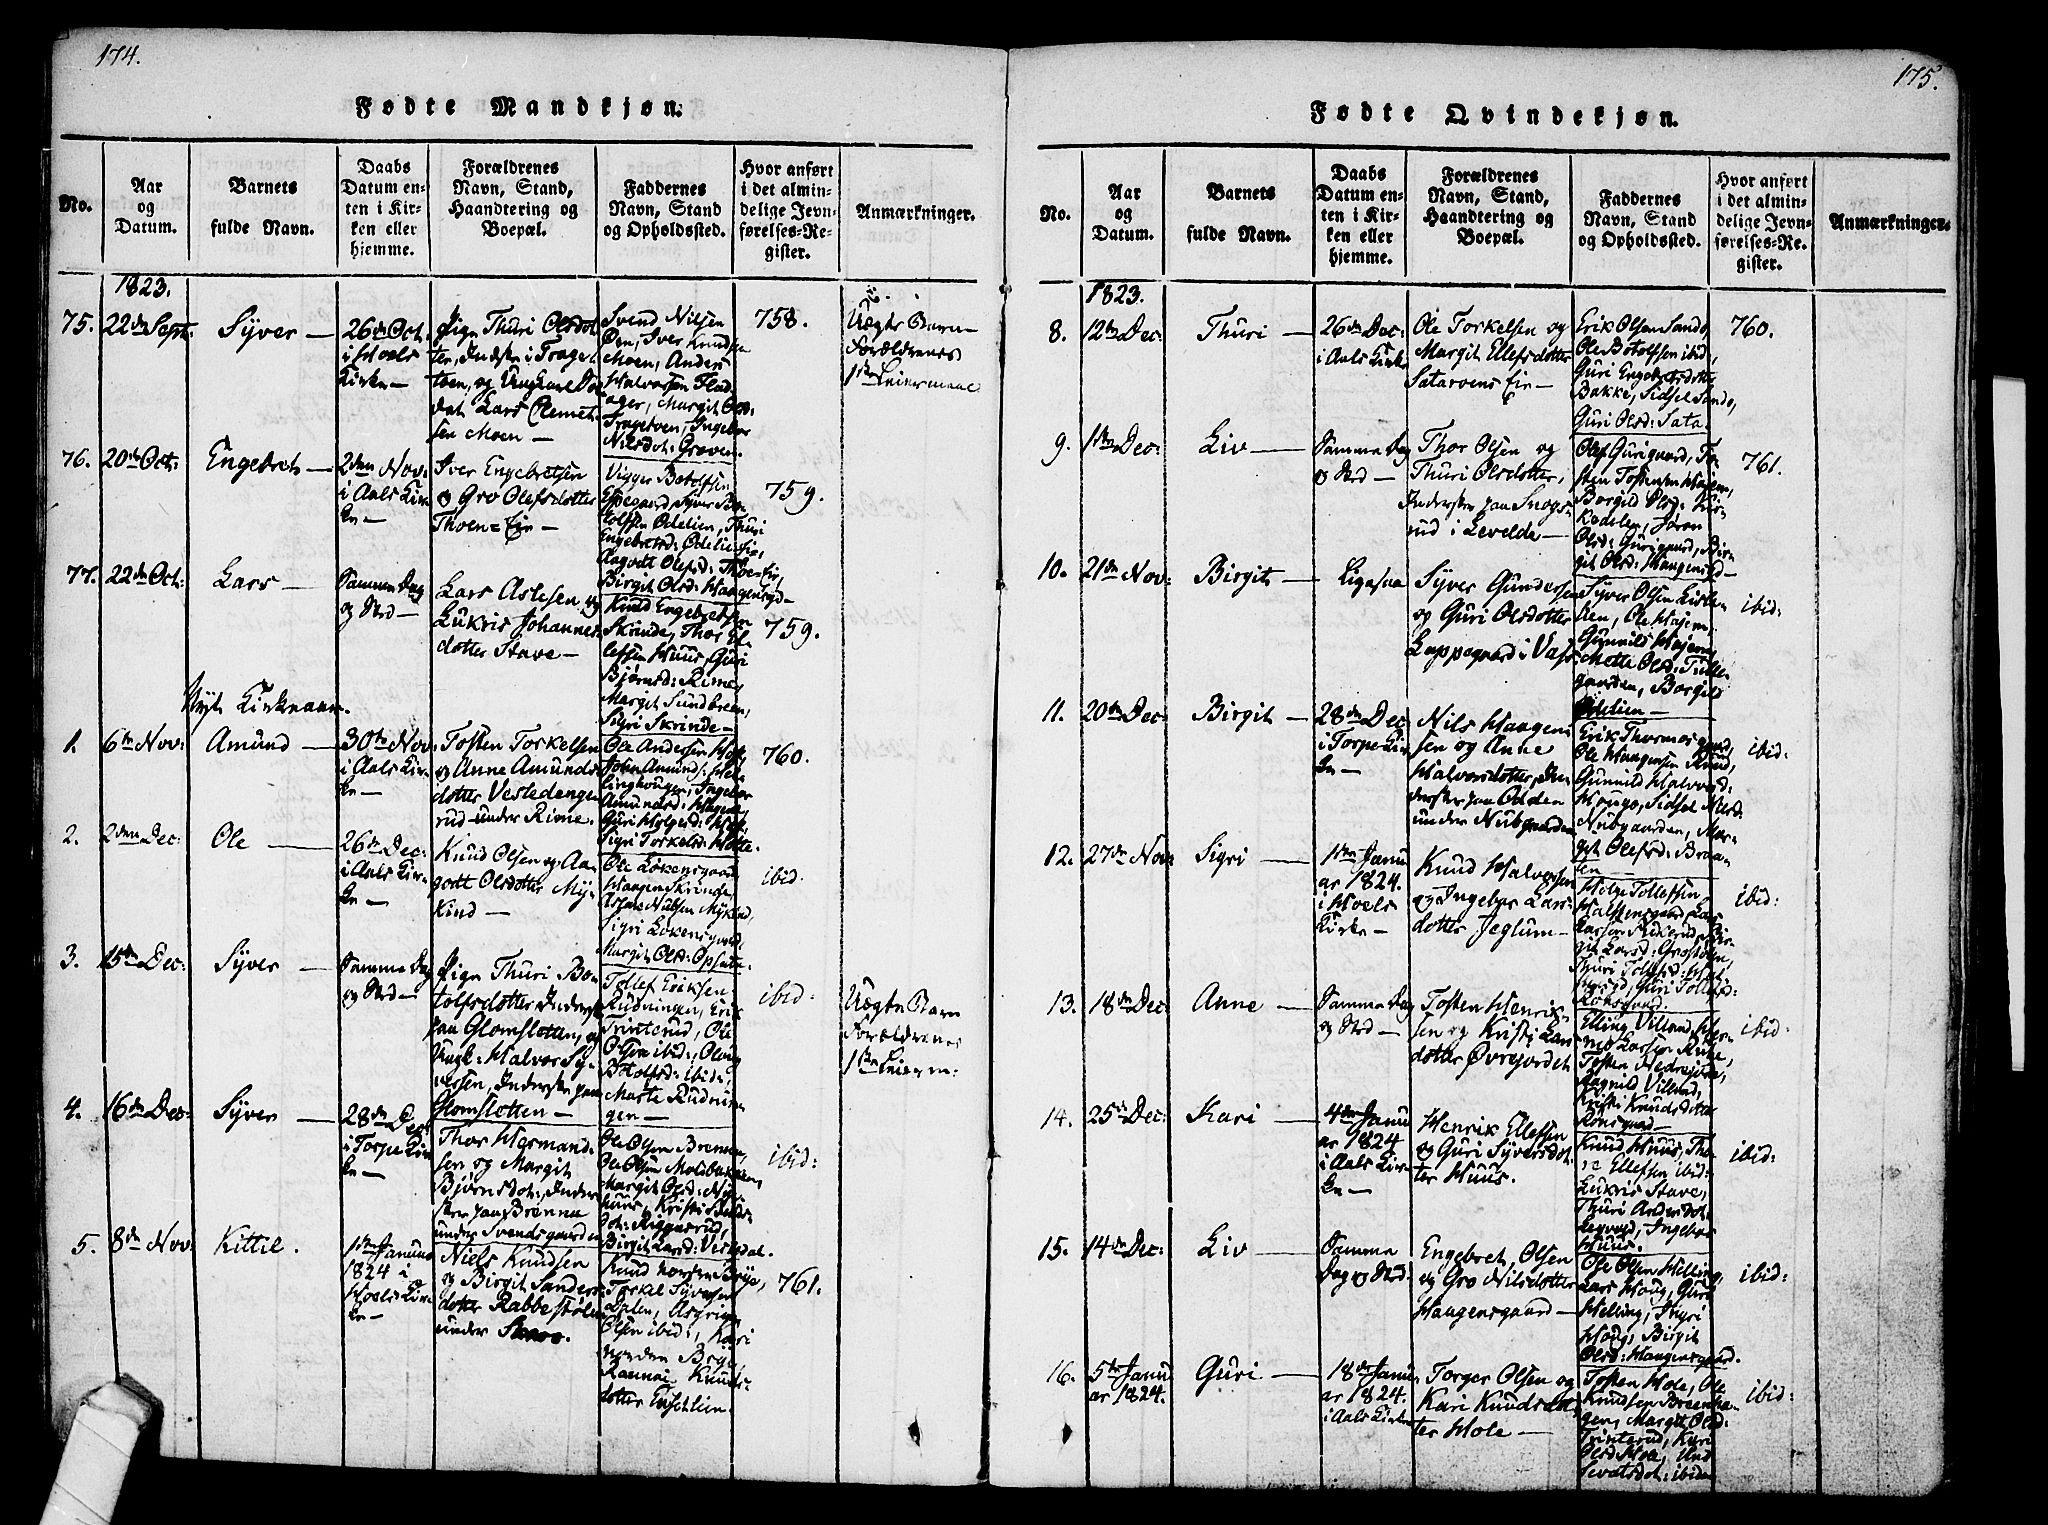 174.
Fødte Mandkjøn.
No.
Aar
og
Datum.
Barnets
fulde Navn.
Daabs
Datum en-
ten i Kir-
ken eller
hjemme.
Forældrenes
Navn, Stand,
Haandtering og
Boepæl.
Faddernes
Navn, Stand
og Opholdssted.
Hvor anført
i det almin-
delige Jevn-
førelses-Re-
gister.
Anmærkninger.
1823.
75. 22de Sept.
Syver
26de Oct.
i Hoels
Kirke
Pige Thuri Olsdot
ter, Inderst i Traget-
toen, og Ungkarl Sol
dat Lars Clemet-
sen Moen
Svend Nilsen
Øen, Iver Knudsen
Moen, Anders
Halvorsen Flad-
ager, Margit Ols:
Tragetoen, Ingebor
Nilsdot: Groven.
758.
Uægte Barn
Forældrenes
1ste Leiermaal
76. 20de Oct:
Engebret
2den Nov:
i Aals Kir-
ke
Iver Engebretsen
og Gro Olefsdotter
Thoen Eie
Vigger Botolfsen
Espegaard, Syver Bo-
tolfsen Ødelien, Thuri
Engebretsd: Ødelie Eie,
Aagodt Olefsd: Thoe Eie,
Birgit Olsd: Haugensgd
759.
77. 22de Oct:
Lars
Samme Dag
og Sted
Lars Aslesen og
Lukris Johannes
dotter Stave
Knud Engebretsen
Skrinde, Thor El-
lefsen Huus, Guri
Bjørnsd: Rime,
Margit Sundbreen,
Sigri Skrinde
759.
Nyt Kirkeaar.
1. 6te Nov:
Amund
30te Nov:
i Aals Kir-
ke
Tosten Torkelsen
og Anne Amunds
dotter Vestedenge
rud under Rime.
Ole Andersen
Amundsd:
Sigri Torkelsd:
760.
2. 2den Dec:
Ole
26de Dec:
i Aals Kir-
ke
Knud Olsen og Aa-
godt Olsdotter My-
kind
Ole Løkensgaard
Haagen Skrinde
Nubsen Mykind,
Sigri Løkensgaard
Margit Olsd: Opsata
ibid:
3. 15de Dec:
Syver
Samme Dag
og Sted
Pige Thuri Bo-
tolfsdotter, Inderst
paa Glomslotten, og
Ungk: Halvor Sy-
versen, Inderste paa
Glomslotten
Tollef Eriksen
Rudningen, Erik
Trinterud, Ole
Olsen ibid:, Oloug
Botolfsd: ibid:,
Marte Rudnin-
gen
ibid:
Uægte Barn
Forældrenes
1ste Leierm:
4. 16de Dec:
Syver
28de Dec:
i Torpe Kir-
ke
Thor Herman
sen og Margit
Bjørnsdot: Inder
ster paa Brenna
under Svensgaarden
Ole Olsen Brennen,
Ole Olsen Moldbakken,
Margit Olsd: Ny-
huus, Kristi
Birgit Larsd:
ibid:
5. 8de Nov:
Kittil.
1ste Januar
1824 i
Hoels Kir-
ke
Niels Knudsen
og Birgit Sanders
dotter Rabbestølen
under Skaro.
Knud norden Brye,
Torkel Syversen
Dalen, Asgrim
Olsen ibid:, Kari
norden Brye,
Rannei Knuds-
dotter Enschlien.
761.
175.
Fødte Qvindekjøn.
No.
Aar
og
Datum.
Barnets
fulde Navn.
Daabs
Datum en-
ten i Kir-
ken eller
hjemme.
Forældrenes
Navn, Stand,
Haandtering og
Boepæl.
Faddernes
Navn, Stand
og Opholdssted.
Hvor anført
i det almin-
delige Jevn-
førelses-Re-
gister.
Anmærkninger.
1823.
8. 12te Dec:
Thuri
26de Dec:
i Aals Kirke
Ole Torkelsen og
Margit Ellefsdotter
Sataroens Eie
Erik Olsen Sando
Ole Botolfsen ibid,
Guri Engebretsdotter
Bakke, Sidsel Sando,
Guri Olsd: Sata.
760.
9. 1ste Dec:
Liv
Samme Dag
og Sted
Thor Olsen og
Thuri Olsdotter,
Inderster paa Snogs-
rud i Levelde
Olef Gurigaard, To-
sten Tostensen Hajem,
Borgild Olsd:
Jøran
Olsd: Gurigaard, Bir-
git Olsd: Haugensgd
761.
10. 21de Nov:
Birgit
Ligesaa
Syver Gundersen
og Guri Olsdotter
Lappegaard i Vats
Syver Olsen Lislelien,
Ole Hajem,
Gunnild Hajem,
Mette Olsd: Tulle-
gaarden, Borgild
Ødelien
ibid:
11. 20de Dec:
Birgit
28de Dec:
i Torpe Kir-
ke
Nils Haagen
sen og Anne
Halvorsdotter, In
derster paa Odden
under Nubgaarden
Erik Thormosgaard,
Ole Haagensen Ruud,
Gunnild Halvorsd:
Hougo, Sidsel Nilsd:
Nubgaarden, Mar-
git Olefsd: Braa-
ten
ibid:
12. 27de Nov:
Sigri
1ste Janu
ar 1824.
i Hoels
Kirke
Knud Halvorsen
og Ingebor Lars-
dotter Jeglum
Helge Tollefsen
Halstensgaard, Lars
Larsen Rikerud, Bir-
git Larsd:
Thuri Tollefsd:
Guri Tollefsd:
Rønsgaard
ibid:
13. 18de Dec:
Anne
Samme Dag
og Sted
Tosten Henrik-
sen og Kristi Lars
dotter Øvrejordet
Elling Villand, Her-
mo Larsen Rime,
Tosten Nedrejore,
Ragnild Villand,
Kristi Knudsdotter
Rønsgaard
ibid:
14. 25de Dec:
Kari
4de Janu
ar 1824
i Aals Kir-
ke
Henrik Ellefsen
og Guri Syversdot-
ter Huus.
Knud Huus, Tho-
re Ellefsen ibid:
Lukris Stave,
Thuri Andersdot:
Legvold, Ingebor
Huus.
ibid:
15. 14de Dec:
Liv
Samme
Dag og Sted
Engebret Olsen
og Gro Nilsdotter
Haugensgaard
Ole Olsen Helling,
Lars Houg, Guri
Helling, Ingri
Houg, Birgit
Olsd: Haugensgaard.
ibid:
16. 5te Janu
ar 1824.
Guri
18de Janu
ar 1824.
i Aals Kirke
Torger Olsen og
Kari Knudsdot-
ter Hole
Tosten Hole, Ole
Knudsen Breenha-
gen, Margit Olsd:
Trinterud, Kari
Olsd: Hoa, Une
Sevatsdot: ibidem
ibid: